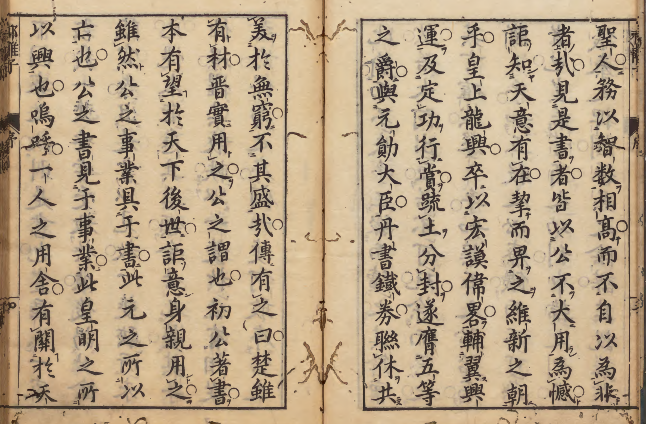 聖人務以智数相高而不自以為非
者㢤見是書者皆以公不大用為憾
詎知天意有在摯而畀之維新之朝
乎皇上龍興卒以宏謨偉畧輔翼興
運及定功行賞疏土分封遂膺五等
之爵與元勛大臣丹書鐵券聮休共
美於無窮不其盛㢤傳有之曰楚雖
有材晋實用之公之謂也初公著書
本有望於天下後世詎意身親用之
雖然公之事業具于書此元之所以
亡也公之書見于事業此皇明之所
以興也嗚呼一人之用舍有關於天
郁離子
序
四